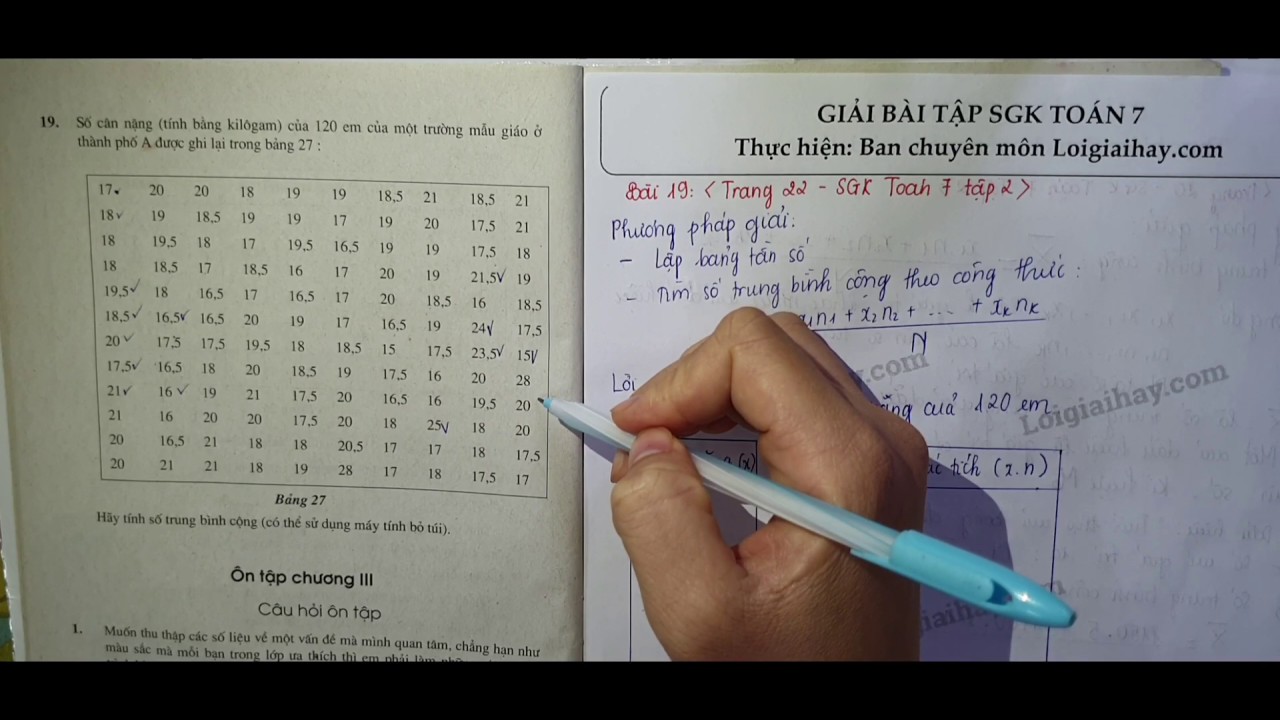 19. Số cân nặng (tính bằng kilôgam) của 120 em của một trường mẫu giáo ở
thành phố A được ghi lại trong bảng 27 :
17 20 20 18 19 19 18,5 21 18,5 21
18 19 18,5 19 19 17 19 20 17,5 21
18 19,5 18 17 19,5 16,5 19 19 17,5 18
18 18,5 17 18,5 16 17 20 19 21,5 19
19,5 18 16,5 17 16,5 17 20 18,5 16 18,5
18,5 16,5 16,5 20 19 17 16,5 19 24 17,5
20 17,5 17,5 19,5 18 18,5 15 17,5 23,5 15
17,5 16,5 18 20 18,5 19 17,5 16 20 28
21 16 19 21 17,5 20 16,5 16 19,5 20
21 16 20 20 17,5 20 18 25 18 20
20 16,5 21 18 18 20,5 17 17 18 17,5
20 21 21 18 19 28 17 18 17,5 17
Bảng 27
Hãy tính số trung bình cộng (có thể sử dụng máy tính bỏ túi).
Ôn tập chương III
Câu hỏi ôn tập
1. Muốn thu thập các số liệu về một vấn đề mà mình quan tâm, chẳng hạn như
màu sắc mà mỗi bạn trong lớp ưa thích thì em phải làm
GIẢI BÀI TẬP SGK TOÁN 7
Thực hiện: Ban chuyên môn Loigiaihay.com
Bài 19: < Trang 22 - SGK Toán 7 tập 2 >
Phương pháp giải:
- Lập bảng tần số
- Tìm số trung bình cộng theo công thức :
n1 + x2n2 + ... + xknk
N
.com
Lời
của 120 em
Loigiaihay.com
(x)
tích (x.n)
giaihay.com